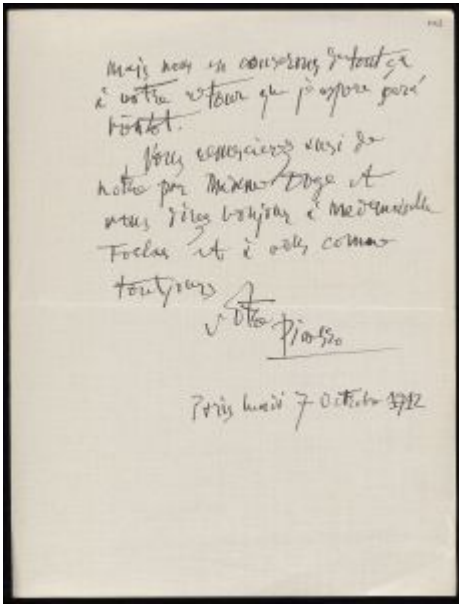 mais nous en causerons de tout ça
à votre retour que j'espere sera
bientot.
Vous remercierez aussi de
notre par Madame Doge et
vous direz bonjour à Mademoiselle
et à vous comme
toutjours
Votre
Picasso
Paris lundi 7 Octobre 1912